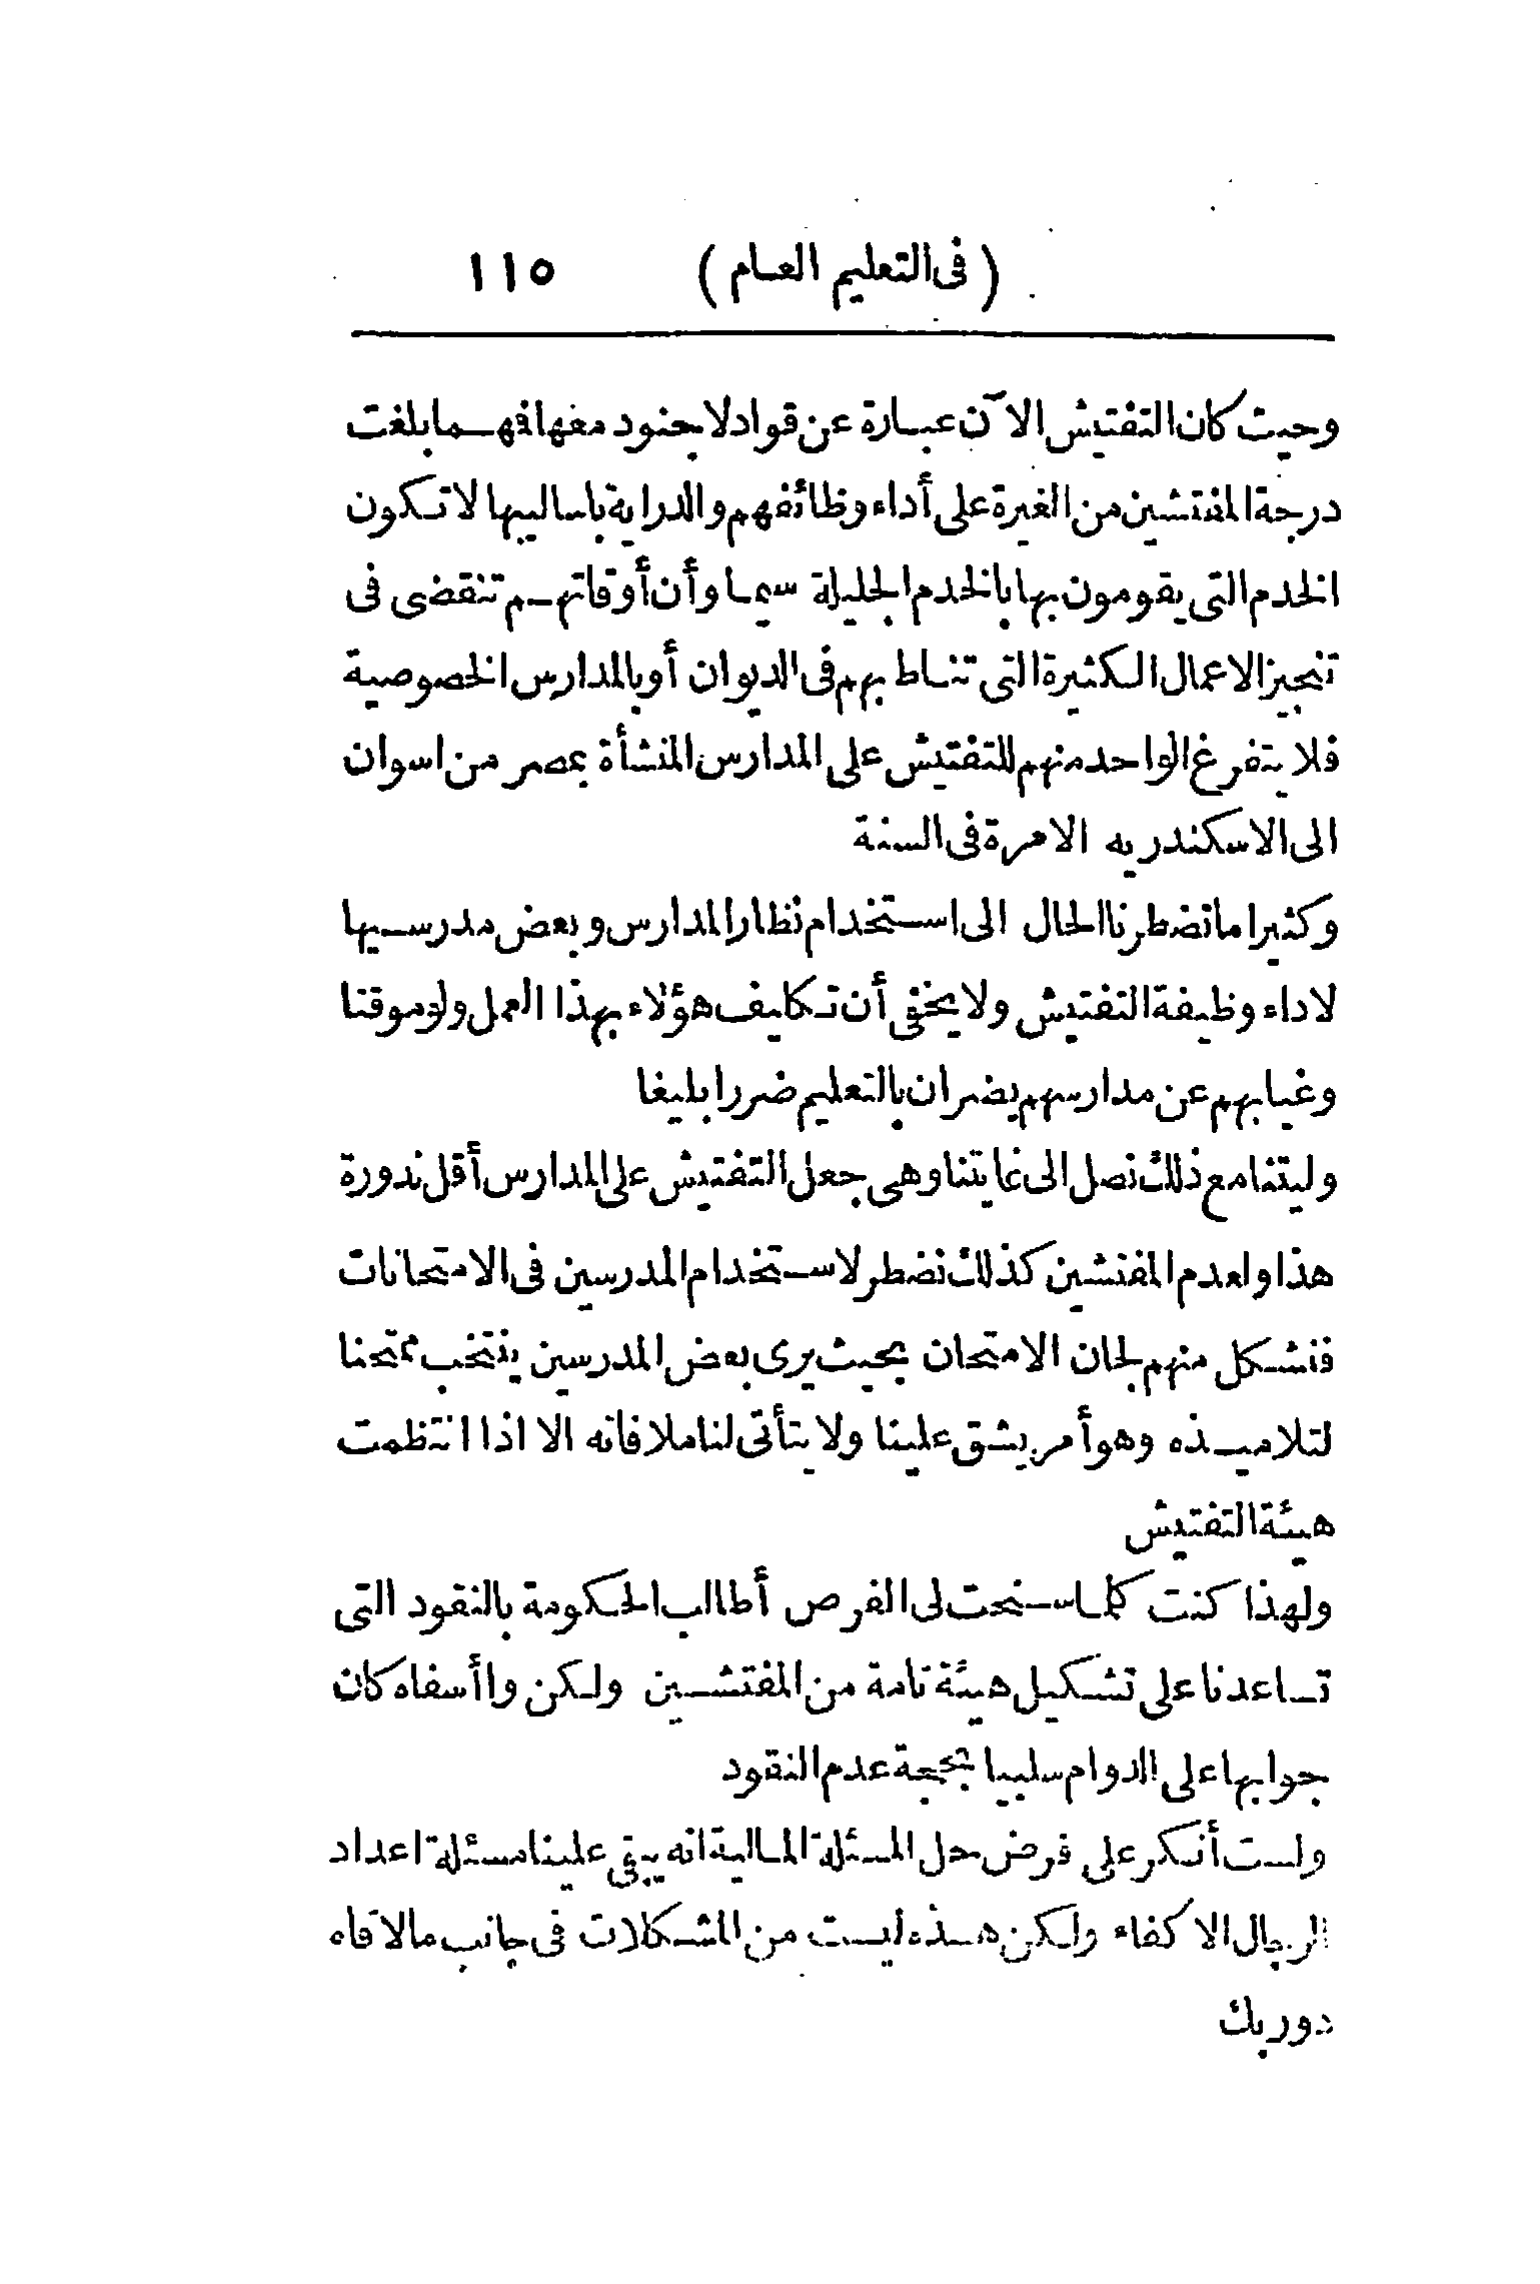 ( فى التعليم العام ) ١١٥
وحيث كان التفتيش الآن عبارة عن قواد لا جنود معها فهما بلغت
درجة المفتشين من الغيرة على أداء وظائفهم والدراية باساليبها لا تكون
الخدم التى يقومون بها بالخدم الجليلة سيما وأن أوقاتهم تنقضى فى
تنجيز الاعمال الكثيرة التى تناط بهم فى الديوان أو بالمدارس الخصوصية
فلا يتفرغ الواحد منهم للتفتيش على المدارس المنشأة بمصر من اسوان
الى الاسكندريه الا مرة فى السنة
وكثيرا ما تضطرنا الحال الى استخدام نظار المدارس وبعض مدرسيها
لاداء وظيفة التفتيش ولا يخفى أن تكليف هؤلاء بهذا العمل ولو موقتا
وغيابهم عن مدارسهم يضران بالتعليم ضررا بليغا
وليتنا مع ذلك نصل الى غايتنا وهى جعل التفتيش على المدارس أقل ندورة
هذا ولعدم المفتشين كذلك نضطر لاستخدام المدرسين فى الامتحانات
فنشكل منهم لجان الامتحان بحيث يرى بعض المدرسين ينتخب ممتحنا
لتلاميذه وهو أمر يشق علينا ولا يتأتى لنا ملافاته الا اذا انتظمت
هيئة التفتيش
ولهذا كنت كلما سنحت لى الفرص أطالب الحكومة بالنقود التى
تساعدنا على تشكيل هيئة تامة من المفتشين ولكن وا أسفاه كان
جوابها على الدوام سلبيا بحجة عدم النقود
ولست أنكر على فرض حل المسئلة المالية انه يبقى علينا مسئلة اعداد
الرجال الاكفاء ولكن هذه ليست من المشكلات فى جانب ما لاقاه
دور بك